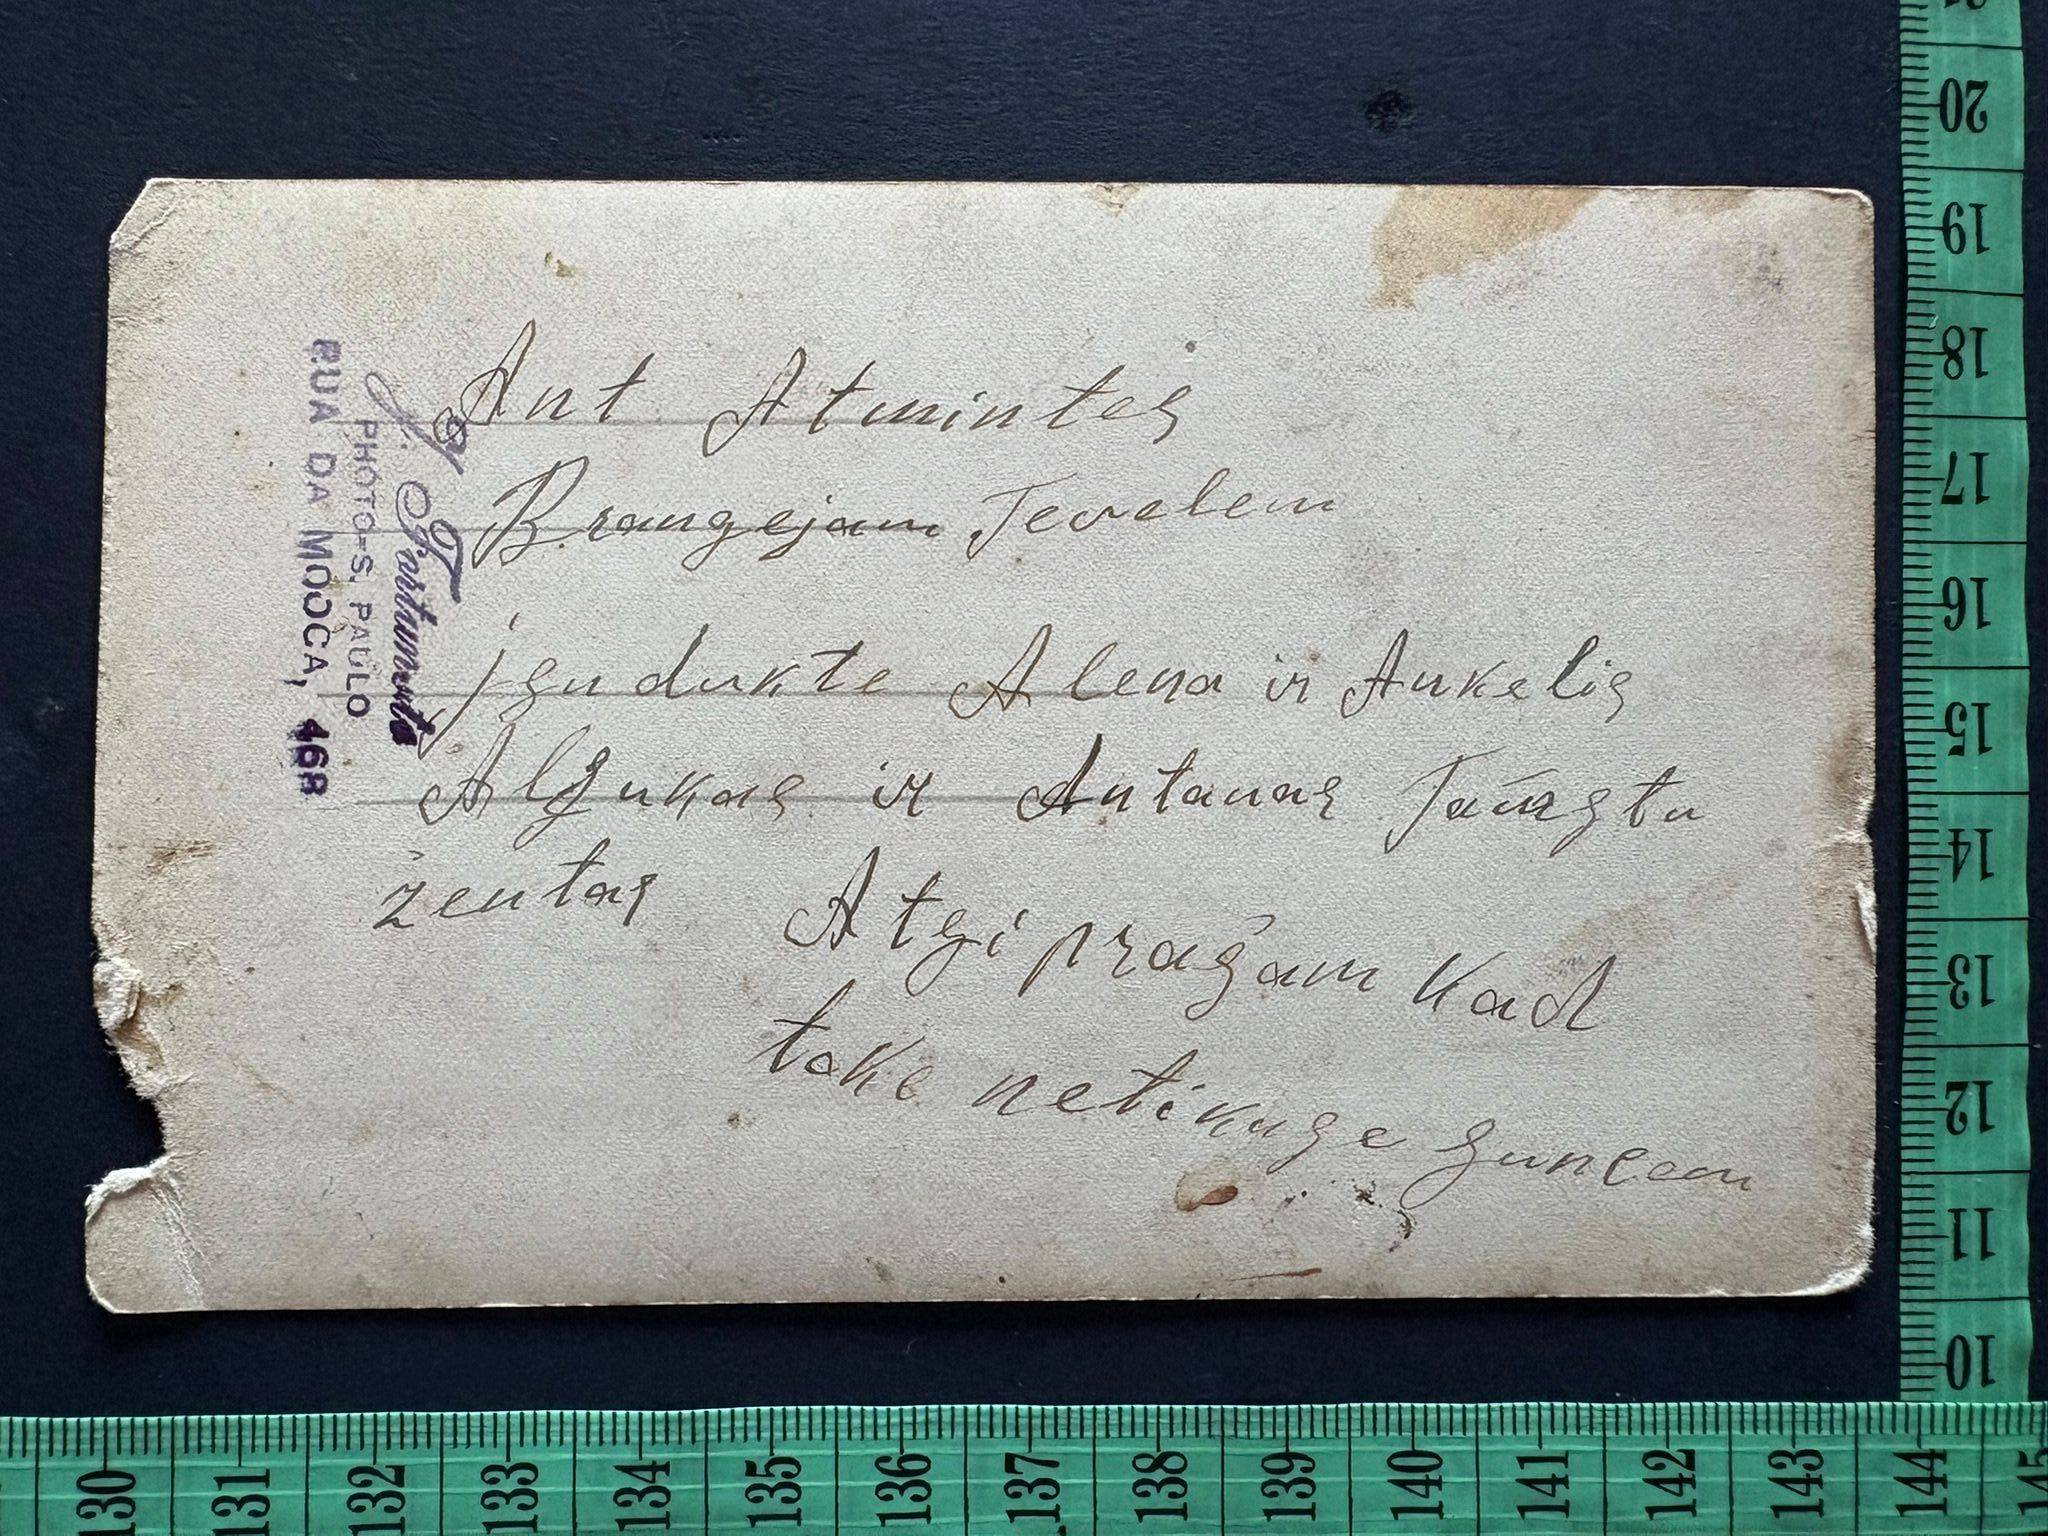 Ant Atmintes
Brangejam Tevelem
jsu dukte Alena ir Aukelis
Algukas ir Antanas
žentas Atsiprašam kad
toke netikuse suncem
J. Fortunato
PHOTO-S. PAULO
RUA DA MOOCA, 468
20
19
18
17
16
15
14
13
12
11
10
130 131 132 133 134 135 136 137 138 139 140 141 142 143 144 145